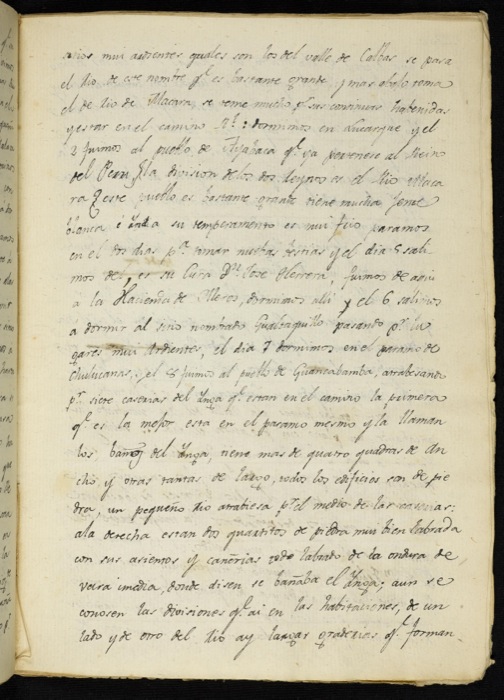 mui ardientes quales son los del valle de Calbas se pasa
el Rio de este nombre q.^e es bastante grande y mas abajo toma
el de Rio de Macara, se teme mucho p.^r sus continuas habenidas
y estar en el camino R.^l: dormimos en Lucarque y el
2 fuimos al pueblo de Ayabaca q.^e ya pertenese al Reino
del Peru, la division de los dos Reynos es el Rio Maca
ra este pueblo es bastante grande tiene mucha jente
blanca é Yndia su temperamento es mui frio paramos
en el dos dias p.^a tomar nuebas bestias y el dia 5 sali
mos del, es su Cura D.^n Jose Herrera, fuimos de aqui
a la Hacienda de Olleros, dormimos alli y el 6 salimos
a dormir al sitio nombrado Gualtaquillo pasando p.^r lu
gares mui Ardientes, el dia 7 dormimos en el paramo de
Chulucanas, y el 8 fuimos al pueblo de Guancabamba, atrabesando
p.^r siete caserias del Ynga q.^e estan en el camino la primera
q.^e es la mejor esta en el paramo mesmo y la llaman
los baños del Ynga, tiene mas de quatro quadras de An
cho y otras tantas de largo, todos los edificios son de pie
dra, un pequeño Rio atrabiesa p.^r el medio de las caserias;
ala derecha estan dos quartitos de piedra mui bien labrada
con sus asientos y cañerias todo labado de la ondura de
vara i media, donde disen, se bañaba el Ynga; aun se
conosen las divisiones q.^e ai en las habitaciones, de un
lado y de otro del Rio ay largas graderias q.^e forman